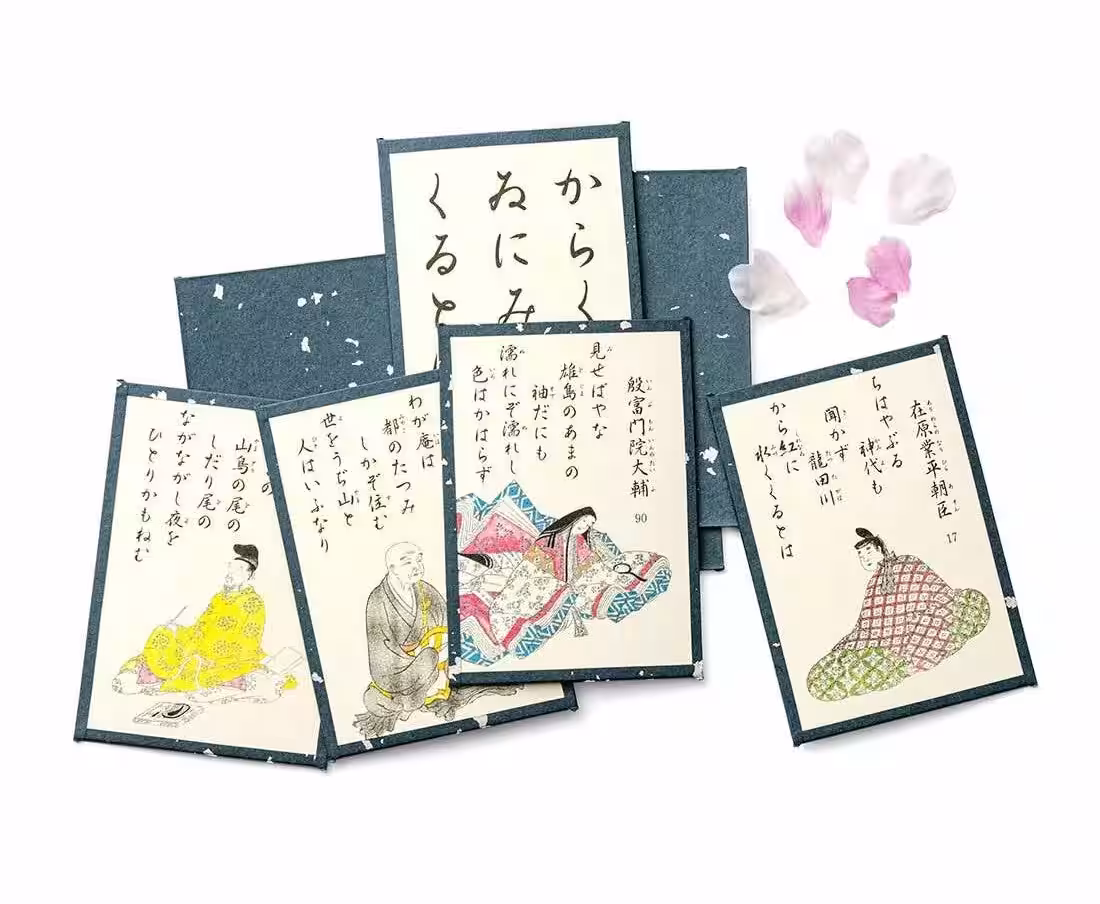 からく
ゐにみ
くると
殷富門院大輔
90
見せばやな
雄島のあまの
袖だにも
濡れにぞ濡れし
色はかはらず
わが庵は
都のたつみ
しかぞ住む
世をうぢ山と
人はいふなり
の
山鳥の尾の
しだり尾の
ながながし夜を
ひとりかもねむ
在原業平朝臣
17
ちはやぶる
神代も
聞かず
龍田川
から紅に
水くくるとは